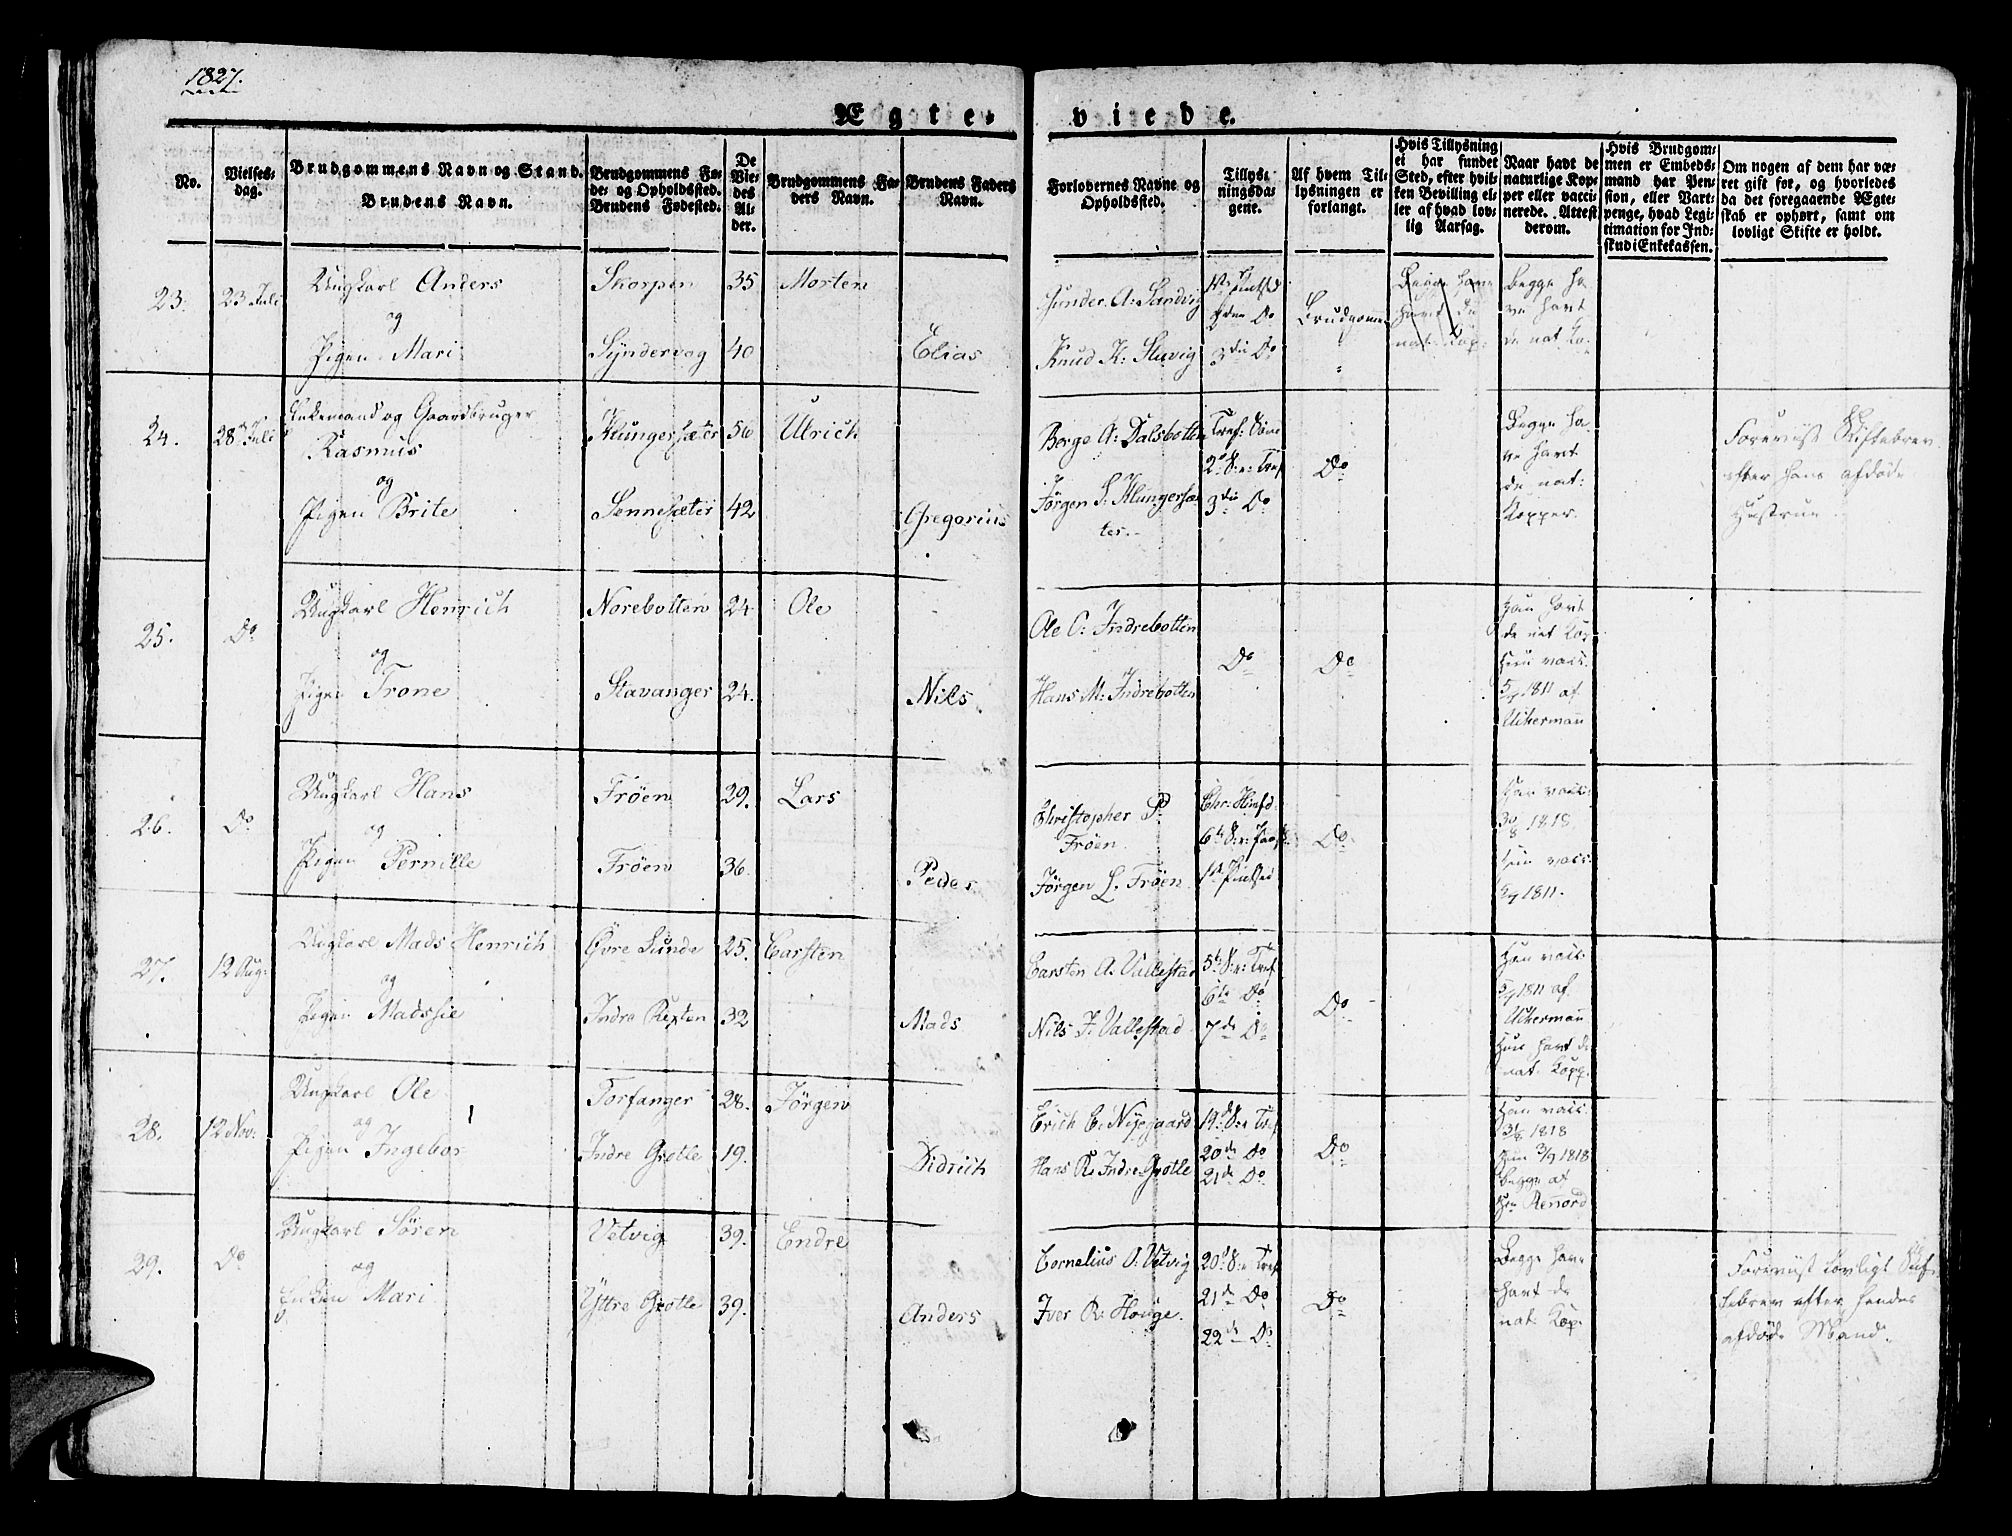 1827.
Ægteviede.
No.
Vielsesdag.
Brudgommens Navn og Stand.
Brudens Navn.
Brudgommens Føde- og Opholdssted.
Brudens Fødested.
De Viedes Alder.
Brudgommens Faders Navn.
Brudens Faders Navn.
Forlovernes Navne og Opholdssted.
Tillysningsdagene.
Af hvem Tillysningen er forlangt.
Hvis Tillysning ei har fundet Sted, efter hvilken Bevilling eller af hvad lovlig Aarsag.
Naar havt de naturlige Kopper eller vaccinerede. Attest derom.
Hvis Brudgommen er Embedsmand har Pension, eller Vartpenge, hvad Legitimation for Indskud i Enkekassen.
Om nogen af dem har været gift før, og hvorledes da det foregaaende Ægteskab er ophørt, samt om lovligt Skifte er holdt.
23. 23 Juli Ungkarl Anders Skorpen 35 Morten
og
Pigen Mari Syndervog 40 Elias
Gunder A: Sandvig
Knud K: Sluvig
3die Do
Begge have havt de nat. Kop:
Begge have havt de nat Ko
24. 28 Juli Enkemand og Gaardbruger
Rasmus Klungersæter 56 Ulrich
og
Pigen Brite Sennesæter 42 Gregorius
Børge A: Dalsbotten
Jørgen S. Klungersæter.
3die Do
Do
Begge have havt de nat: Kopper.
Foreviist Skiftebrev efter hans afdøde Hustrue
25. Do Ungkarl Henrich Norebotten 24 Ole
og
Pigen Trone Stavanger 24. Nils
Ole O: Indrebotten
Hans M: Indrebotten
Do Do
Han havt de nat Kop
Hun vacc. 5/7 1811 af Uckerman
26. Do Ungkarl Hans Frøen 29. Lars
og
Pigen Pernille Frøen 36. Peder
Christopher P. Frøen
Jørgen L. Frøen
Do
Han vacc. 30/8 1818
Hun vacc. 5/7 1811.
27. 12 Aug: Ungkarl Mads Henrich Øvre Lunde 25. Carsten
og
Pigen Madssie Indre Rixten 32 Mads
Carsten A. Vallestad
Nils J. Vallestad
5te S: e: Tref
6te Do
7de Do
Do
Han vacc. 5/7 1811 af Uckerman
Hun havt de nat. Kopp.
28. 12 Nov: Ungkarl Ole Torfanger 28. Jørgen
og
Pigen Ingebor Indre Grotle 19. Didrich
Erich E: Nygaard
Hans R: Indre Grotle
19de S: e Tref
20de Do
21de Do
Do
Han vacc. 31/8 1818
Hun 3/9 1818
begge af
Hr. Rennord
29. Do Ungkarl Søren Vetvig 39. Endre
og
Enken Mari Yttre Grotle 39. Anders
Cornelius O: Vetvig
Iver R: Houge.
20de S: e Tref
21de Do
22de Do
Do
Begge have havt de nat. Kop.
Foreviist lovligt Skiftebrev efter hendes afdøde Mand.